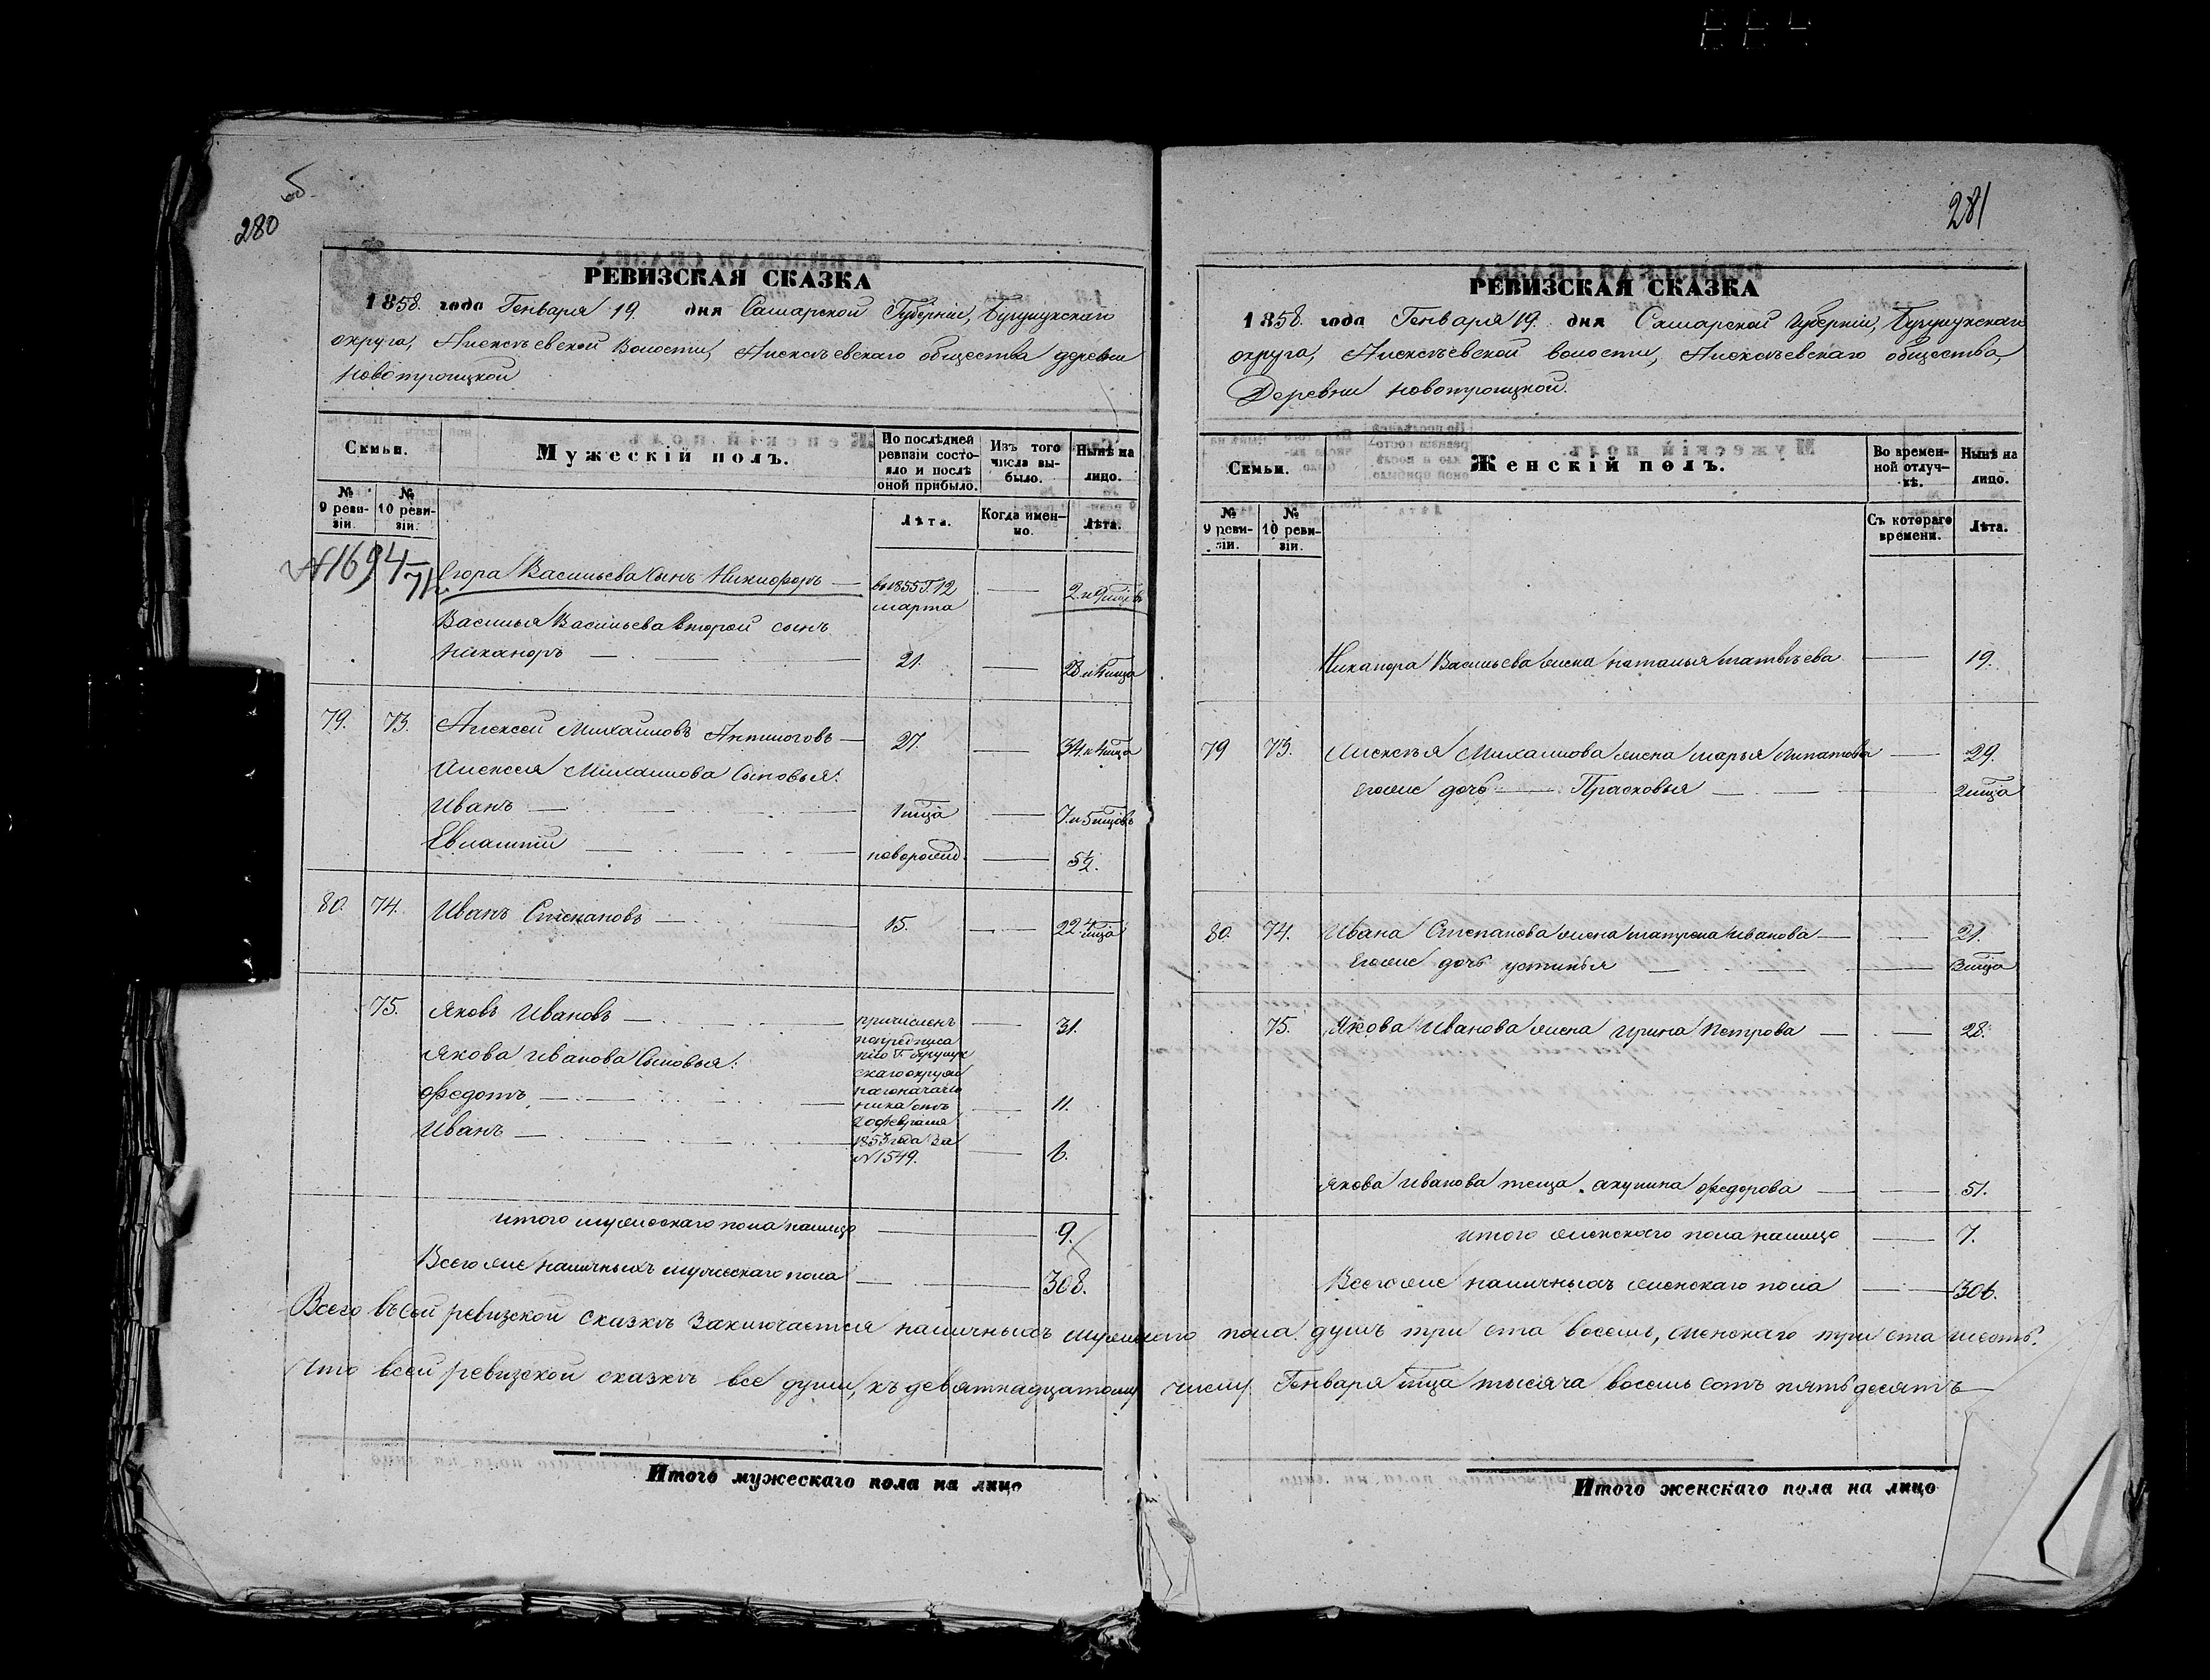 280
РЕВИЗСКАЯ СКАЗКА
1858. года Генваря 19. дня Самарской Губерніи, Бугульскаго
округа, Алексѣевской Волости, Алексѣевскаго общества деревни
Новотроицкой
Семьи.
Мужескій полъ.
По послѣдней ревизіи состояло и послѣ оной прибыло.
Изъ того числа выбыло.
Нынѣ на лицо.
№ 9 ревизіи.
№ 10 ревизіи.
Лѣта.
Когда именно.
Лѣта.
№1694
71 Егора Васильева сынъ Никифоръ — въ 1855 Г. 12 марта — 2. и
Василья Васильева второй сынъ
Никаноръ — 21. — 28 и 4 мца
79. 73. Алексей Михайловъ — 27. — 34 и 4 мца
Алексея Михайлова Сыновья:
Иванъ — 1 мца — 7. и 5 мцовъ
Евлампій — новорожд. — 5½.
80. 74. Иванъ Степановъ — 15. — 22 4 мца
75. Яковъ Ивановъ — причисленъ — 31.
по предписа
нію Г.
скаго окруж
наго началь
ника отъ
февраля
1853 года за
№1549.
Якова Иванова Сыновья:
Федотъ — 11.
Иванъ — 6.
итого мужескаго пола налицо — 9.
Всего же наличныхъ мужескаго пола — 308.
281
РЕВИЗСКАЯ СКАЗКА
1858. года Генваря 19. дня Самарской Губерніи,
округа, Алексѣевской волости, Алексѣевскаго общества,
Деревни Новотроицкой.
Семьи.
Женскій полъ.
Во временной отлучкѣ.
Нынѣ на лицо.
№ 9 ревизіи.
№ 10 ревизіи.
Съ котораго времени.
Лѣта.
Никанора Васильева жена Наталья Матвѣева — 19.
79 73. Алексѣя Михайлова жена Марья Ипатова — 29.
Егоже дочь — Прасковья — 2 мца
80. 74. Ивана Степанова жена Матрена Иванова — 21.
Егоже дочь Устинья — 3 мца
75. Якова Иванова жена Ирина Петрова — 28.
Якова Иванова теща Акулина Федорова — 51.
итого женскаго пола налицо — 7.
Всегоже наличныхъ женскаго пола — 306.
Всего въ сей ревизской сказкѣ заключается наличныхъ мужескаго пола душъ три ста восемь, женскаго три ста шесть.
Что всей ревизской сказкѣ все души, къ девятнадцатому числу Генваря мца тысяча восемь сотъ пятьдесятъ
Итого мужескаго пола на лицо
Итого женскаго пола на лицо